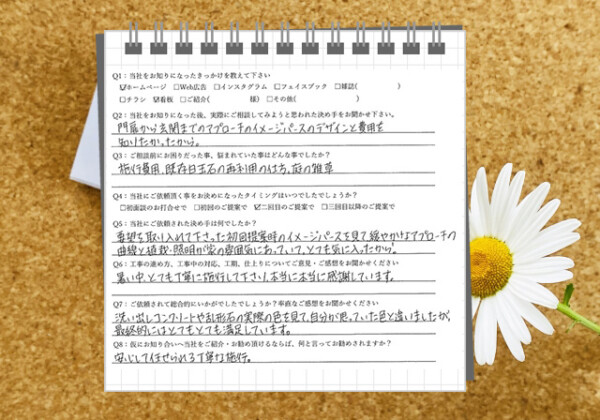 Q1：当社をお知りになったきっかけを教えて下さい
☑ホームページ □Web広告 □インスタグラム □フェイスブック □雑誌( )
□チラシ ☑看板 □ご紹介( 様) □その他( )
Q2：当社をお知りになった後、実際にご相談してみようと思われた決め手をお聞かせ下さい。
門扉から玄関までのアプローチのイメージパースのデザインと費用を
知りたかったから。
Q3：ご相談前にお困りだった事、悩まれていた事はどんな事でしたか？
施行費用、既存白玉石の再利用の仕方、庭の雑草
Q4：当社にご依頼頂く事をお決めになったタイミングはいつでしたでしょうか？
□初面談のお打合せで □初回のご提案で ☑二回目のご提案で □三回目以降のご提案で
Q5：当社にご依頼された決め手は何でしたか？
要望を取り入れて下さった初回提案時のイメージパースを見て緩やかなアプローチの
曲線と植栽・照明が家の雰囲気にあっていて、とても気に入ったから。
Q6：工事の進め方、工事中の対応、工期、仕上りについてご意見・ご感想をお聞かせください
暑い中、とても丁寧に施行して下さり、本当に本当に感謝しています。
Q7：ご依頼されて総合的にいかがでしたでしょうか？率直なご感想をお聞かせください
洗い出しコンクリートや乱形石の実際の色を見て、自分が思っていた色と違いましたが、
最終的にはとてもとても満足しています。
Q8：仮にお知り合いへ当社をご紹介・お勧め頂けるならば、何と言ってお勧めされますか？
安心して任せられる丁寧な施行。